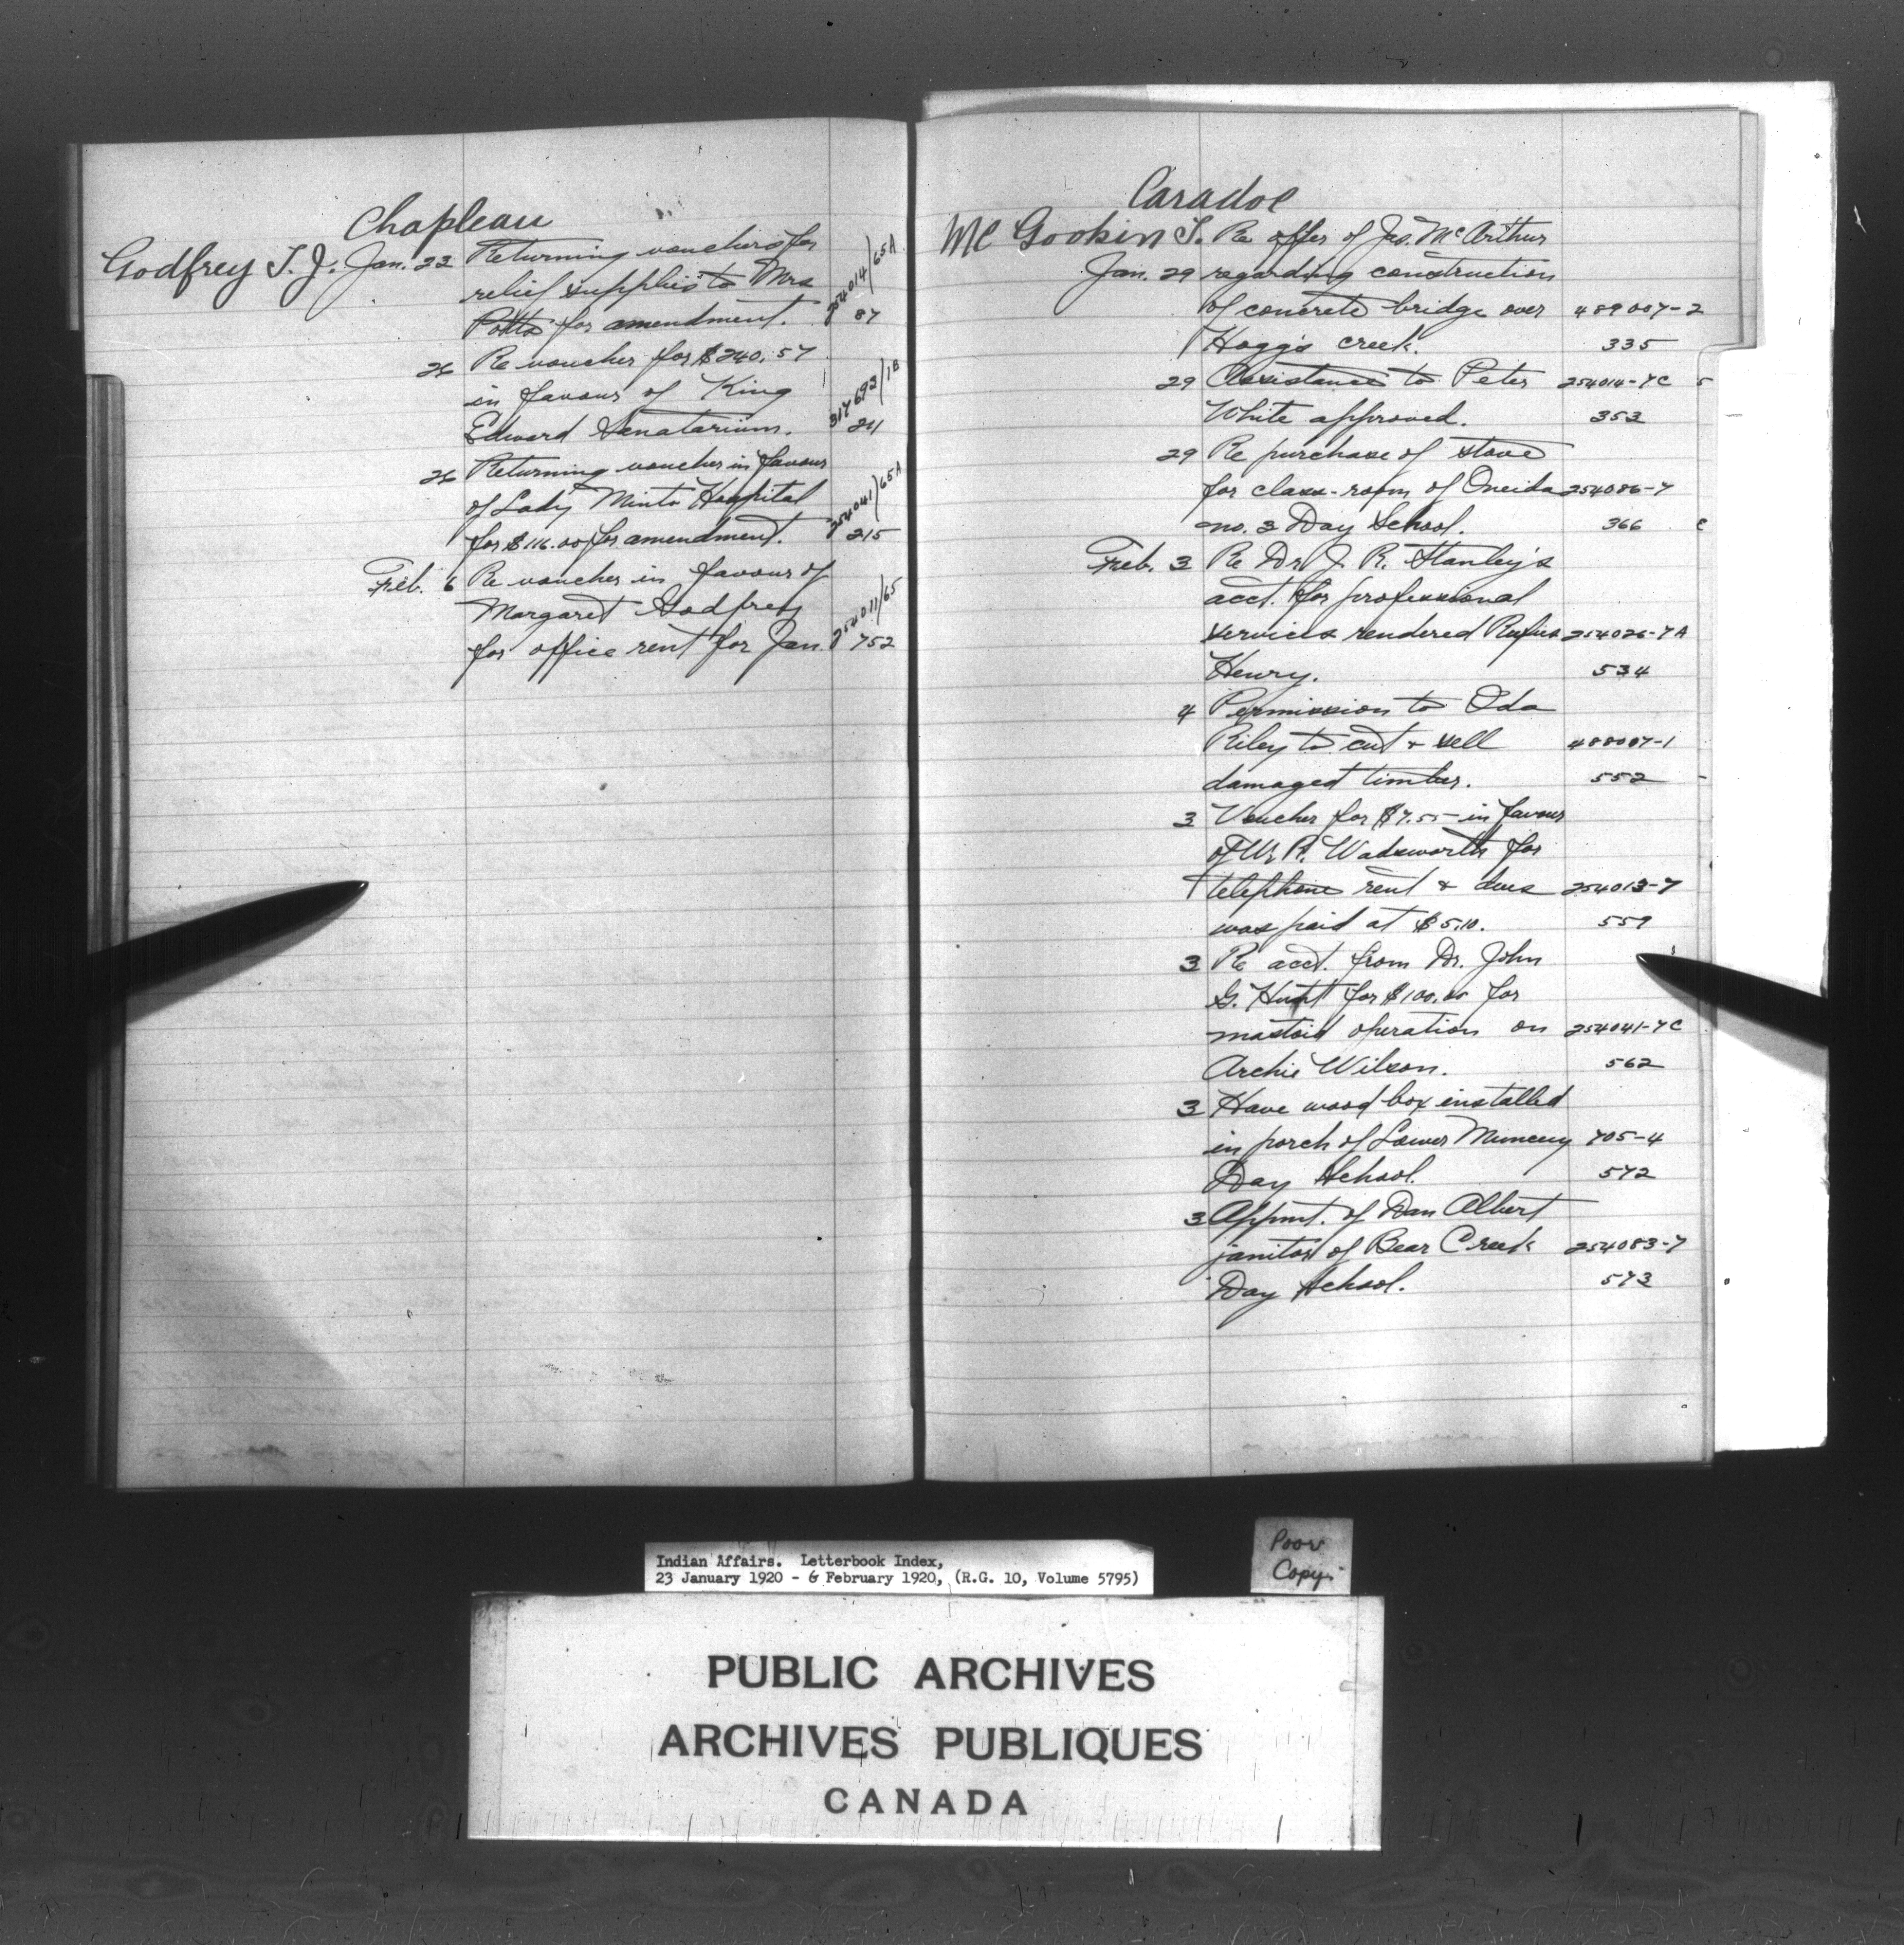 Chapleau
Godfrey T. J. Jan. 22 Returning vouchers for
relief supplies to Mrs 254014/65A
Potts for amendment. 87
26 Re voucher for $240.57
in favour of King 317693/1B
Edward Sanatarium. 211
26 Returning voucher in favour
of Lady Minto Hospital 254041/65A
for $116.00 for amendment. 215
Feb. 6 Re voucher in favour of
Margaret Godfrey 254011/65
for office rent for Jan. 752
Caradoc
McGookin T. Re offer of Jas. McArthur
Jan. 29 regarding construction
of concrete bridge over 489007-2
Hogg's creek. 335
29 Assistance to Peter 254014-7C
White approved. 353
29 Re purchase of stove
for class-room of Oneida 254086-7
no. 3 Day School. 366
Feb. 3 Re Dr. J. R. Stanley's
acct. for professional
services rendered Rufus 254026-7A
Henry. 534
4 Permission to Ida
Riley to cut & sell 488007-1
damaged timber. 552
3 Voucher for $7.55 in favour
of W. R. Wadsworth for
telephone rent & dues 254013-7
was paid at $5.10. 559
3 Re acct. from Dr. John
G. Hunt for $100.00 for
mastoid operation on 254041-7C
Archie Wilson. 562
3 Have wood box installed
in porch of Lower Muncey 705-4
Day School. 572
3 Appmt. of Dan Albert
janitor of Bear Creek 254083-7
Day School. 573
Indian Affairs. Letterbook Index,
23 January 1920 - 6 February 1920, (R.G. 10, Volume 5795)
Poor
Copy
PUBLIC ARCHIVES
ARCHIVES PUBLIQUES
CANADA